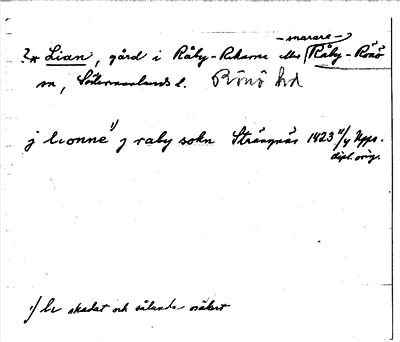 – snarare –
?* Lian, gård i Råby-Rekarne eller Råby-Rönö
sn, Södermanlands l. Rönö hd
j lionne 1) j raby sokn Strängnäs 1423 11/4 Upps.
dipl. orig.
1) li skadat och sålunda osäkert